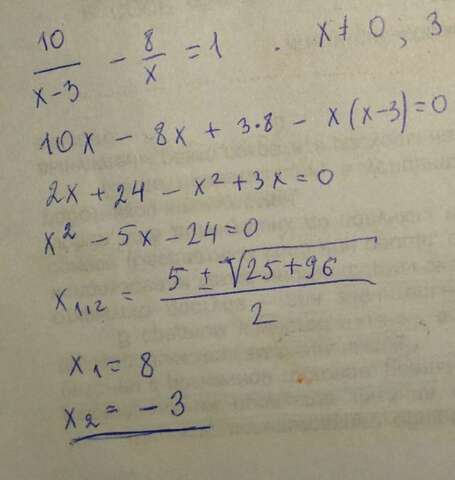 10/(x-3) - 8/x = 1 . x ≠ 0, 3
10x - 8x + 3·8 - x(x-3) = 0
2x + 24 - x² + 3x = 0
x² - 5x - 24 = 0
x₁,₂ = (5 ± √(25+96))/2
x₁ = 8
x₂ = -3